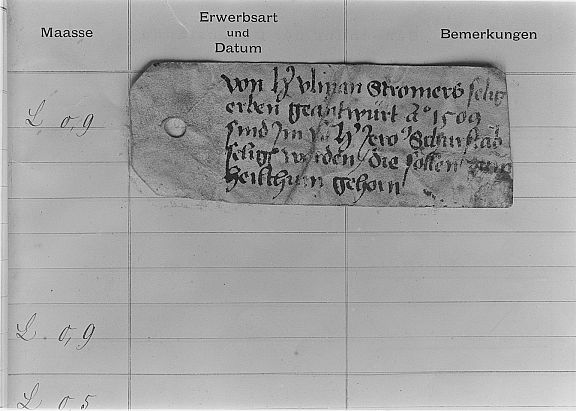 Maasse
Erwerbsart
und
Datum
Bemerkungen
L 0,9
von h' vlman Stromers selig
erben geantwurt Ao 1509
sind Im von h' Jero
seligs worden die sollen zum
heilthum gehorn
L. 0,9
L 0,5